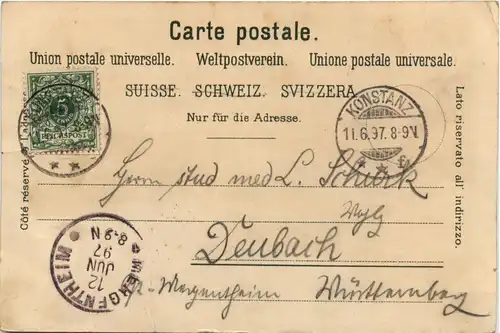 Carte postale.
Union postale universelle. Weltpostverein. Unione postale universale.
SUISSE. SCHWEIZ. SVIZZERA.
Nur für die Adresse.
Côté réservé à l'adresse.
Lato riservato all' indirizzo.
5
REICHSPOST
KONSTANZ
11.6.97. 8-9V.
* * f.
Herrn stud med L. Schurk
Deubach
Mergentheim Württemberg
MERGENTHEIM
12
JUN
97
8-9N